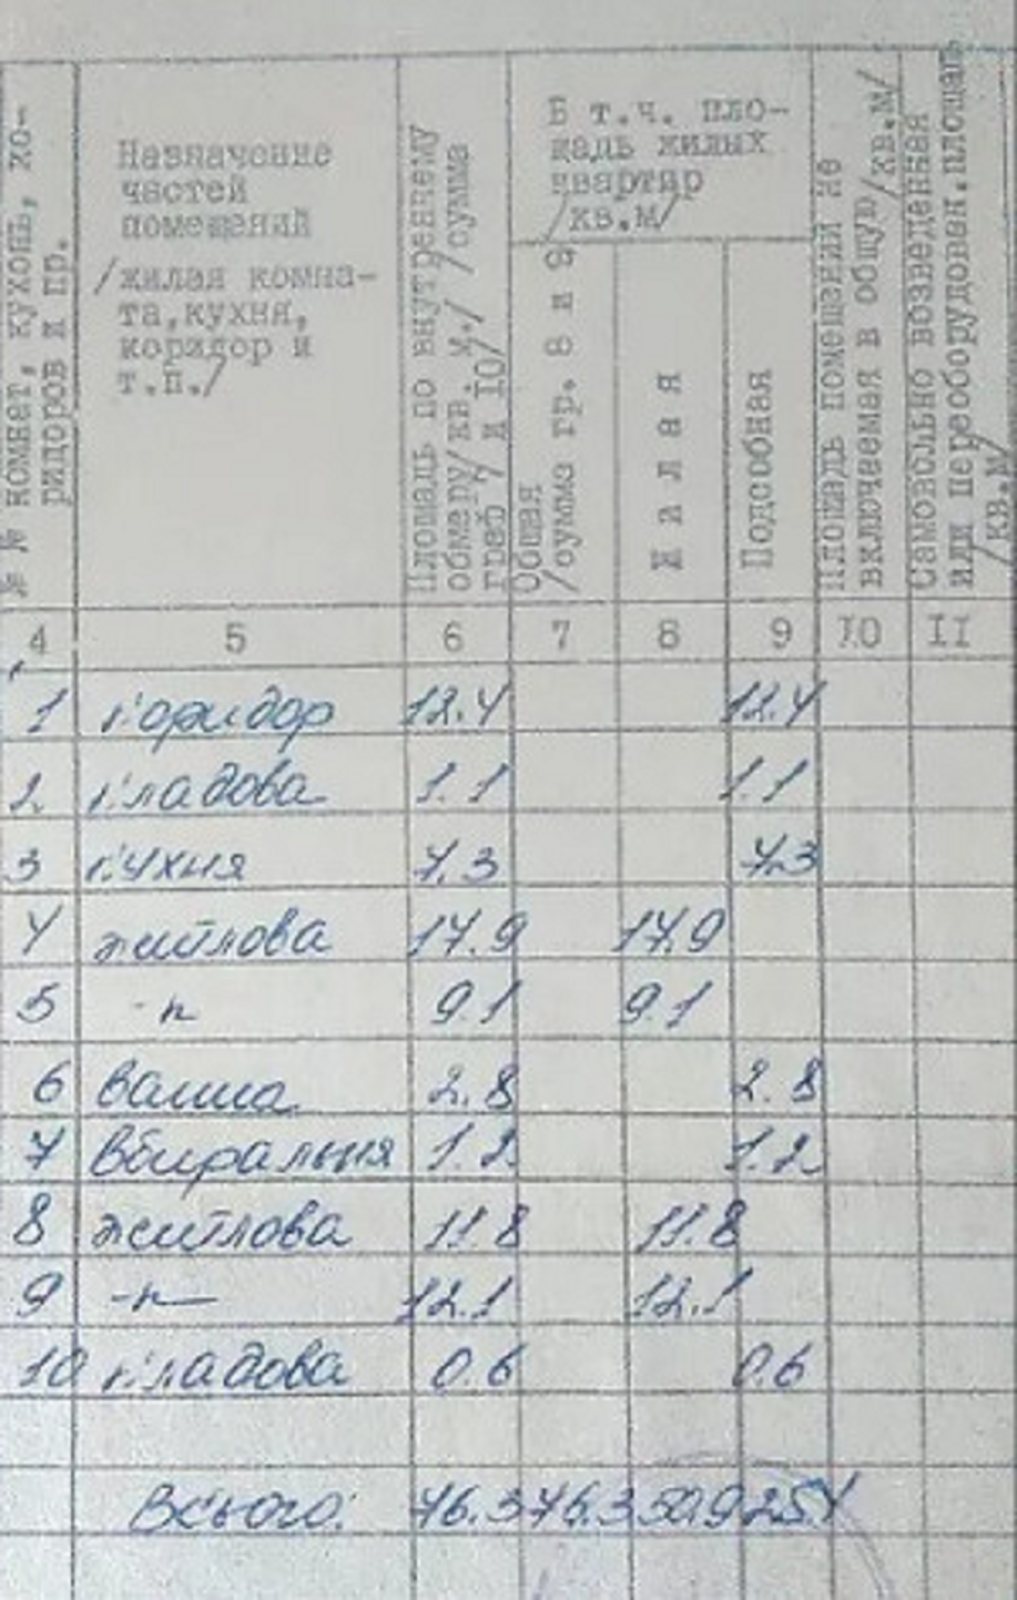 № № комнат, кухонь, ко-
ридоров и пр.
Назначение
частей
помещений
/жилая комна-
та, кухня,
коридор и
т.п./
Площадь по внутреннему
обмеру/кв.м./ /сумма
граф 7 и 10/
В т.ч. пло-
щадь жилых
квартир
/кв.м/
Общая
/сумма гр. 8 и 9
Жилая
Подсобная
Площадь помещений не
включаемая в общую/кв.м/
Самовольно возведенная
или переоборудован.площадь
/кв.м/
4 5 6 7 8 9 10 11
1 коридор 12.4 12.4
2 кладова 1.1 1.1
3 кухня 7.3 7.3
4 житлова 17.9 17.9
5 -"- 9.1 9.1
6 ванна 2.8 2.8
7 вбиральня 1.2 1.2
8 житлова 11.8 11.8
9 -"- 12.1 12.1
10 кладова 0.6 0.6
Всього: 76.3 76.3 50.9 25.4